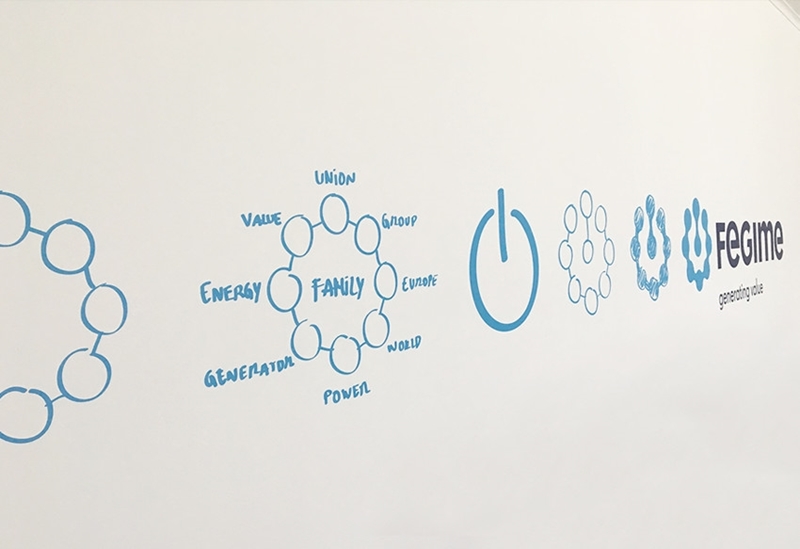 UNION
VALUE
GROUP
ENERGY
FAMILY
EUROPE
GENERATOR
WORLD
POWER
FEGIME
generating value